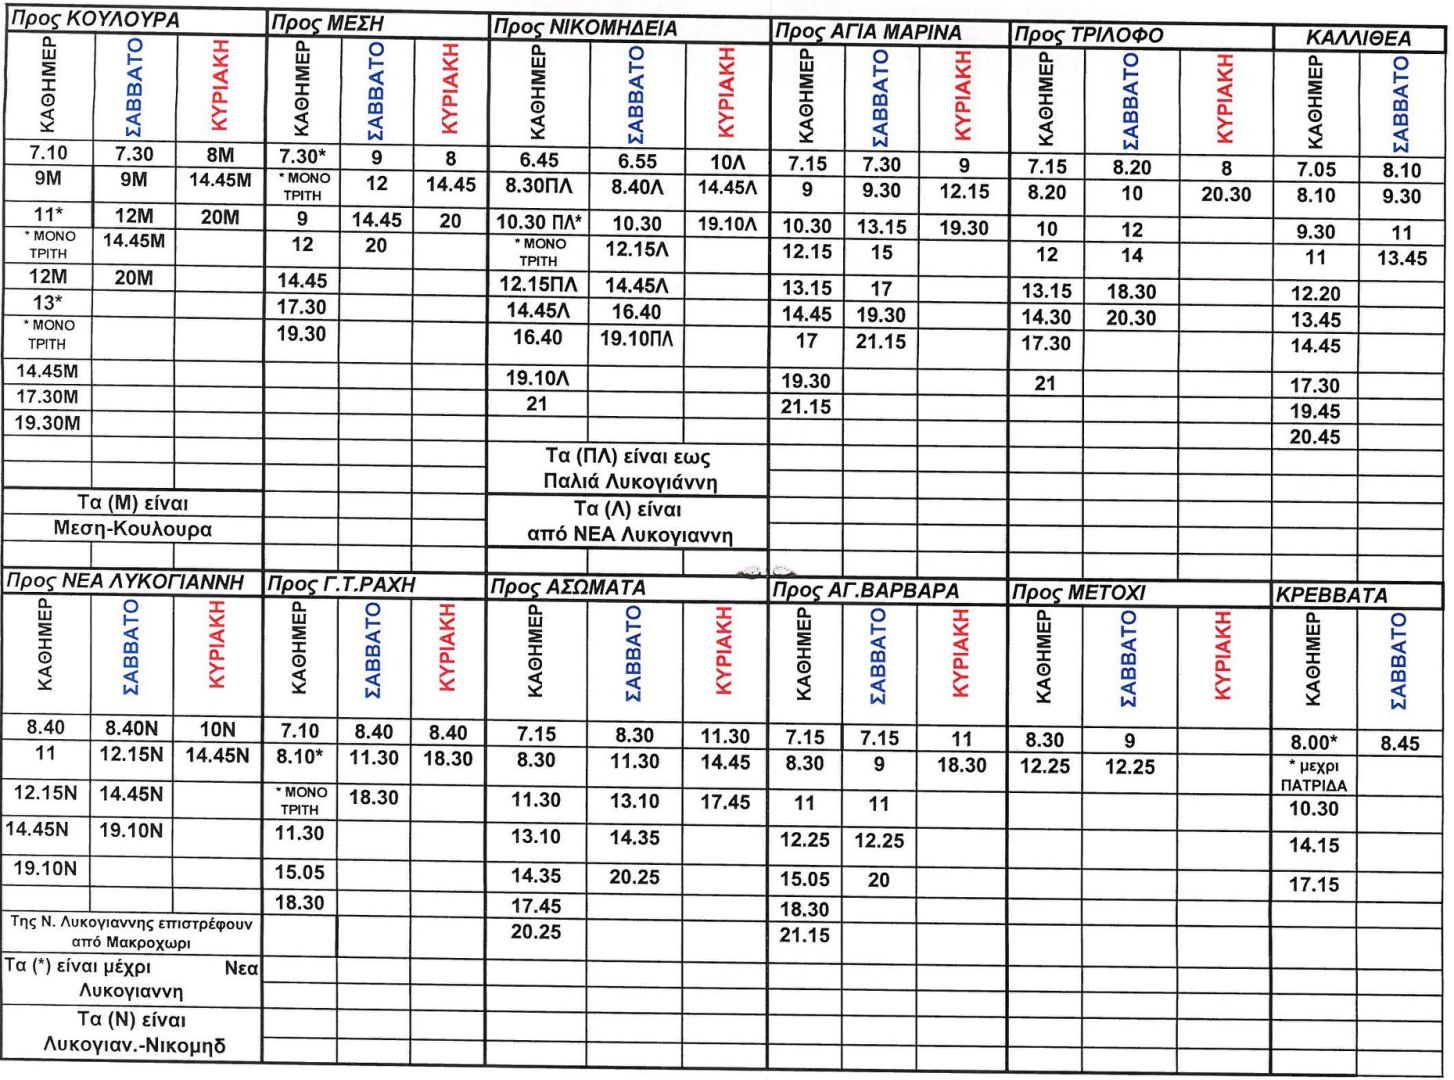 Προς ΚΟΥΛΟΥΡΑ Προς ΜΕΣΗ Προς ΝΙΚΟΜΗΔΕΙΑ Προς ΑΓΙΑ ΜΑΡΙΝΑ Προς ΤΡΙΛΟΦΟ ΚΑΛΛΙΘΕΑ
ΚΑΘΗΜΕΡ ΣΑΒΒΑΤΟ ΚΥΡΙΑΚΗ ΚΑΘΗΜΕΡ ΣΑΒΒΑΤΟ ΚΥΡΙΑΚΗ ΚΑΘΗΜΕΡ ΣΑΒΒΑΤΟ ΚΥΡΙΑΚΗ ΚΑΘΗΜΕΡ ΣΑΒΒΑΤΟ ΚΥΡΙΑΚΗ ΚΑΘΗΜΕΡ ΣΑΒΒΑΤΟ ΚΥΡΙΑΚΗ ΚΑΘΗΜΕΡ ΣΑΒΒΑΤΟ
7.10 7.30 8Μ 7.30* 9 8 6.45 6.55 10Λ 7.15 7.30 9 7.15 8.20 8 7.05 8.10
9Μ 9Μ 14.45Μ * ΜΟΝΟ ΤΡΙΤΗ 12 14.45 8.30ΠΛ 8.40Λ 14.45Λ 9 9.30 12.15 8.20 10 20.30 8.10 9.30
11* 12Μ 20Μ 9 14.45 20 10.30 ΠΛ* 10.30 19.10Λ 10.30 13.15 19.30 10 12 9.30 11
* ΜΟΝΟ ΤΡΙΤΗ 14.45Μ 12 20 * ΜΟΝΟ ΤΡΙΤΗ 12.15Λ 12.15 15 12 14 11 13.45
12Μ 20Μ 14.45 12.15ΠΛ 14.45Λ 13.15 17 13.15 18.30 12.20
13* 17.30 14.45Λ 16.40 14.45 19.30 14.30 20.30 13.45
* ΜΟΝΟ ΤΡΙΤΗ 19.30 16.40 19.10ΠΛ 17 21.15 17.30 14.45
14.45Μ 19.10Λ 19.30 21 17.30
17.30Μ 21 21.15 19.45
19.30Μ 20.45
Τα (ΠΛ) είναι εως
Παλιά Λυκογιάννη
Τα (Μ) είναι Τα (Λ) είναι
Μεση-Κουλουρα από ΝΕΑ Λυκογιαννη
Προς ΝΕΑ ΛΥΚΟΓΙΑΝΝΗ Προς Γ.Τ.ΡΑΧΗ Προς ΑΣΩΜΑΤΑ Προς ΑΓ.ΒΑΡΒΑΡΑ Προς ΜΕΤΟΧΙ ΚΡΕΒΒΑΤΑ
ΚΑΘΗΜΕΡ ΣΑΒΒΑΤΟ ΚΥΡΙΑΚΗ ΚΑΘΗΜΕΡ ΣΑΒΒΑΤΟ ΚΥΡΙΑΚΗ ΚΑΘΗΜΕΡ ΣΑΒΒΑΤΟ ΚΥΡΙΑΚΗ ΚΑΘΗΜΕΡ ΣΑΒΒΑΤΟ ΚΥΡΙΑΚΗ ΚΑΘΗΜΕΡ ΣΑΒΒΑΤΟ ΚΥΡΙΑΚΗ ΚΑΘΗΜΕΡ ΣΑΒΒΑΤΟ
8.40 8.40Ν 10Ν 7.10 8.40 8.40 7.15 8.30 11.30 7.15 7.15 11 8.30 9 8.00* 8.45
11 12.15Ν 14.45Ν 8.10* 11.30 18.30 8.30 11.30 14.45 8.30 9 18.30 12.25 12.25 * μεχρι ΠΑΤΡΙΔΑ
12.15Ν 14.45Ν * ΜΟΝΟ ΤΡΙΤΗ 18.30 11.30 13.10 17.45 11 11 10.30
14.45Ν 19.10Ν 11.30 13.10 14.35 12.25 12.25 14.15
19.10Ν 15.05 14.35 20.25 15.05 20 17.15
18.30 17.45 18.30
Της Ν. Λυκογιαννης επιστρέφουν 20.25 21.15
από Μακροχωρι
Τα (*) είναι μέχρι Νεα
Λυκογιαννη
Τα (Ν) είναι
Λυκογιαν.-Νικομηδ